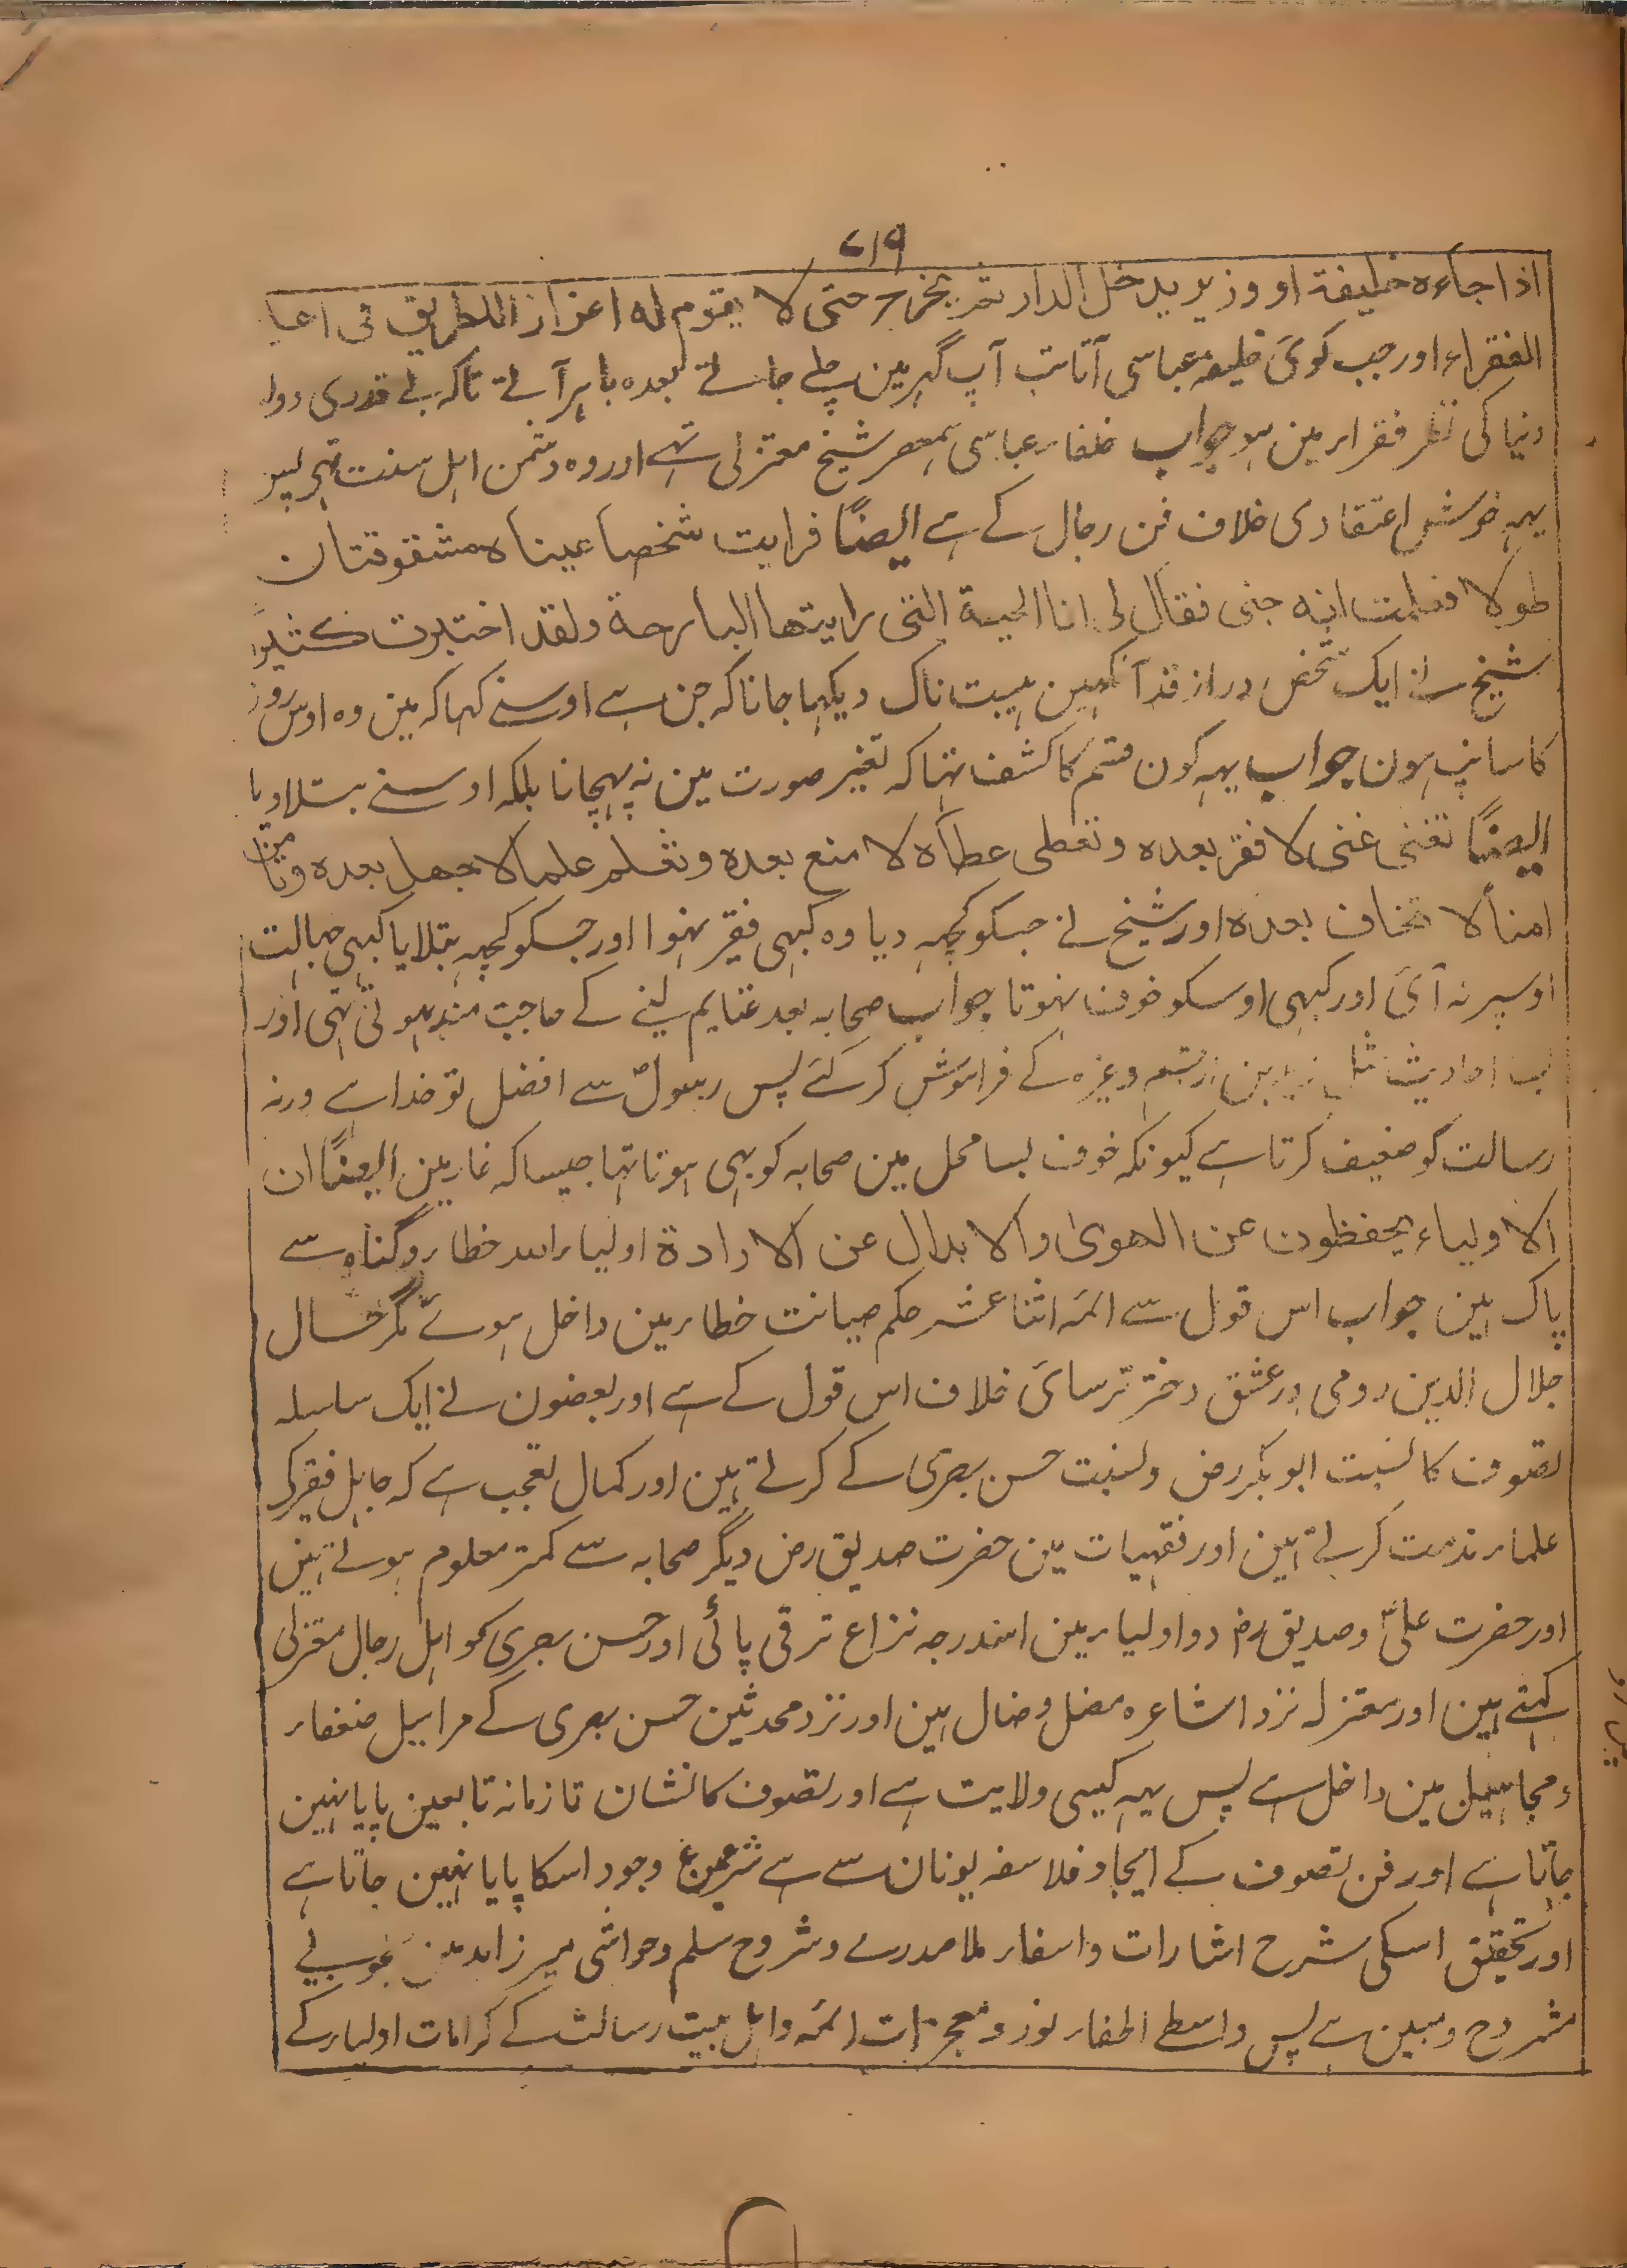 ۷۱۹
اذا جاءه خلیفة او وزیر یدخل الدار ثم یخرج حتی لا یقوم له اعزاز الطریق فی اعیا
الفقراء اور جب کوئی خلیفہ عباسی آتا تب آپ گہر مین چلے جاتے بعدہ باہر آتے تاکہ بے قدری دول
دنیا کی نظر فقراء مین ہو جواب خلفاء عباسی ہمعصر شیخ معتزلی تہے اور وہ دشمن اہل سنت تہے پس
یہہ خوش اعتقادی خلاف فن رجال کے ہے ایضًا فرایت شخصا عیناه مشقوقتان
طولا فعلمت انه جنی فقال لی انا الحیة التی رایتها البارحة ولقد اختبرت کثیرًا
شیخ نے ایک شخص دراز قد آنکہین ہیبت ناک دیکہا جانا کہ جن ہے اوسنے کہا کہ مین وہ اوس روز
کا سانپ ہون جواب یہہ کون قسم کا کشف تہا کہ تغیر صورت مین نہ پہچانا بلکہ اوسنے بتلا دیا
ایضًا تغنی غنی لا فقر بعده وتعطی عطاء لا منع بعده وتعلم علما لا جهل بعده وتامن
امناً لا تخاف بعده اور شیخ نے جسکو کچہہ دیا وہ کبہی فقیر نہوا اور جسکو کچہہ بتلایا کبہی جہالت
اوسپر نہ آئی اور کبہی اوسکو خوف نہوتا جواب صحابہ بعد غنایم لینے کے حاجت مند ہوتی تہی اور
احادیث مثل زید بن ارقم وغیرہ کے فراموش کر گئے پس رسولؐ سے افضل تو خدا ہے ورنہ
رسالت کو ضعیف کرتا ہے کیونکہ خوف بسا محل مین صحابہ کو بہی ہوتا تہا جیسا کہ غار مین ایضًا ان
الاولیاء یحفظون عن الهوی والابدال عن الارادة اولیاء اللہ خطا و گناہ سے
پاک ہین جواب اس قول سے ائمہ اثنا عشر حکم صیانت خطا مین داخل ہوئے مگر حال
جلال الدین رومی در عشق دختر ترسائی خلاف اس قول کے ہے اور بعضون نے ایک سلسلہ
تصوف کا نسبت ابوبکر رض ونسبت حسن بصری کے کرتے ہین اور کمال تعجب ہے کہ جاہل فقیر کی
علماء مذمت کرتے ہین اور فقہیات مین حضرت صدیق رض دیگر صحابہ سے کمتر معلوم ہوتے ہین
اور حضرت علیؑ وصدیق رض دو اولیاء مین اسقدرجہ نزاع ترقی پائی اور حسن بصری کو اہل رجال معتزلی
کہتے ہین اور معتزلہ نزد اشاعرہ مضل وضال ہین اور نزد محدثین حسن بصری کے مراسیل ضعفاء
ومجاہیل مین داخل ہے پس یہہ کیسی ولایت ہے اور تصوف کا نشان تا زمانہ تابعین پایا نہین
جاتا ہے اور فن تصوف کے ایجاد فلاسفہ یونان سے ہے شرع مین وجود اسکا پایا نہین جاتا ہے
اور تحقیق اسکی شرح اشارات واسفار ملا صدرے وشروح سلم وحواشی میرزاہد مین خوبی
مشروح ومبین ہے پس واسطے اطفاء نور ومعجزات ائمہ واہل بیت رسالت کے کرامات اولیاء کے